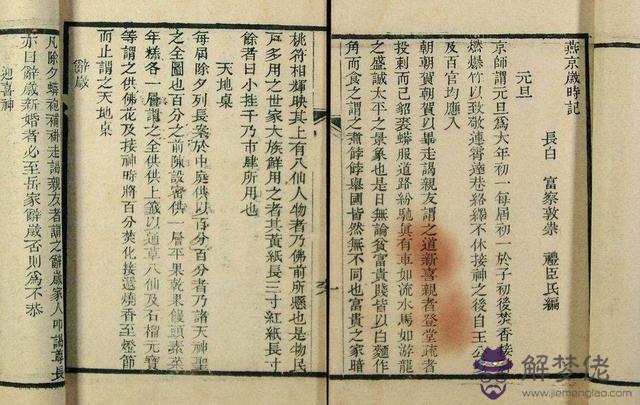 燕京歲時記
長白　富察敦崇　禮臣氏編
元旦
京師謂元旦爲大年初一每屆初一於子初後焚香接
燃爆竹以致敬連霄達巷絡繹不休接神之後自王公
及百官均應入
朝朝賀朝賀已畢走謁親友謂之道新喜親者登堂疏者
投刺而已貂裘蟒服道路紛馳眞有車如流水馬如游龍
之盛誠太平之景象也是日無論貧富貴賤皆以白麵作
角而食之謂之煮餑餑舉國皆然無不同也富貴之家暗
桃符相輝映其上有八仙人物者乃佛前所懸也是物民
戶多用之世家大族鮮用之者其黃紙長三寸紅紙長寸
餘者曰小挂千乃市肆所用也
天地桌
每屆除夕列長案於中庭供以百分百分者乃諸天神聖
之全圖也百分之前陳設蜜供一層平果乾果饅頭素菜
年糕各一層謂之全供供上籤以通草八仙及石榴元寶
等謂之供佛花及接神時將百分焚化接遞燒香至燈節
而止謂之天地桌
辭歲
凡除夕蟒袍補褂走謁親友者謂之辭歲家人叩謁尊長
亦曰辭歲新婚者必至岳家辭歲否則爲不恭
迎喜神
解梦佬
www.jiemenglao.com